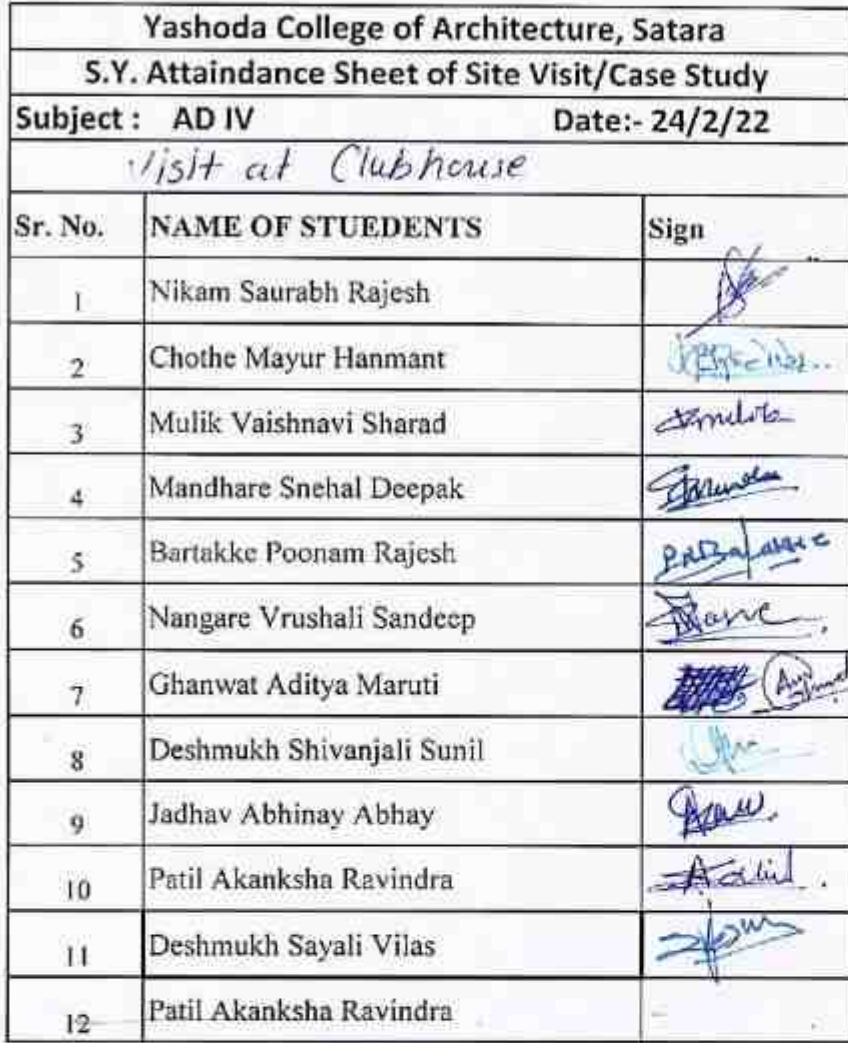 Yashoda College of Architecture, Satara
S.Y. Attaindance Sheet of Site Visit/Case Study
Subject : AD IV Date:- 24/2/22
Visit at Clubhouse
Sr. No. NAME OF STUEDENTS Sign
1 Nikam Saurabh Rajesh
2 Chothe Mayur Hanmant
3 Mulik Vaishnavi Sharad
4 Mandhare Snehal Deepak
5 Bartakke Poonam Rajesh
6 Nangare Vrushali Sandeep
7 Ghanwat Aditya Maruti
8 Deshmukh Shivanjali Sunil
9 Jadhav Abhinay Abhay
10 Patil Akanksha Ravindra
11 Deshmukh Sayali Vilas
12 Patil Akanksha Ravindra